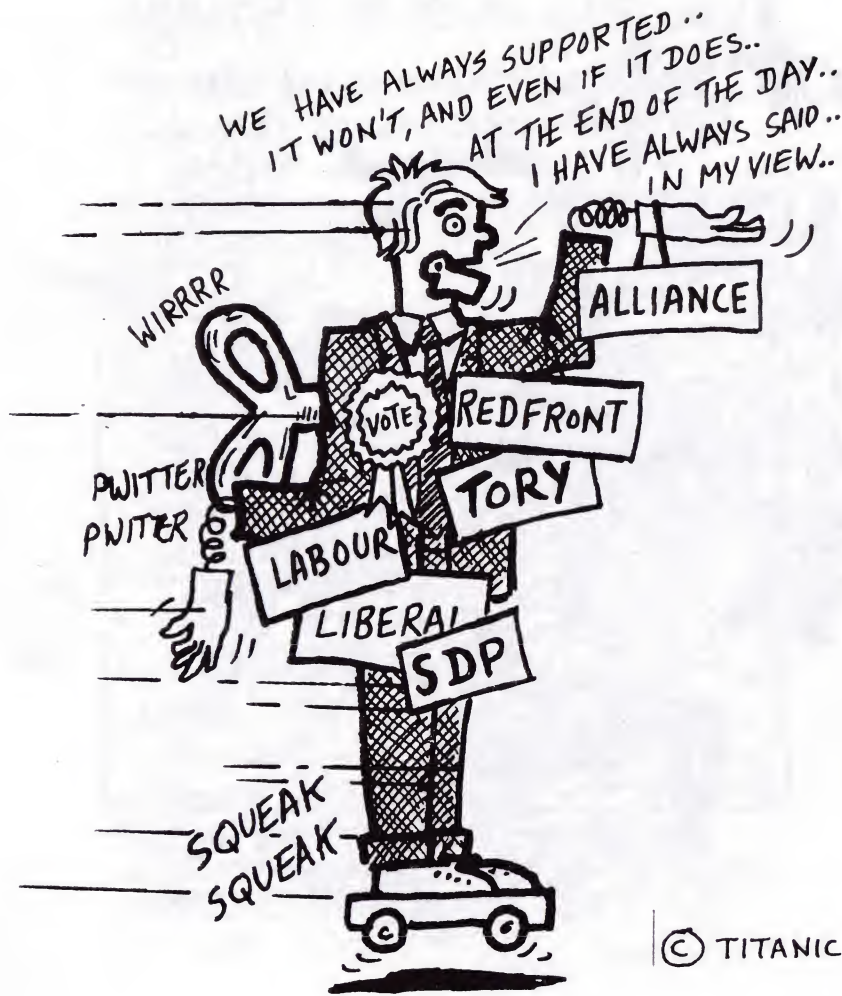 WE HAVE ALWAYS SUPPORTED..
IT WON'T, AND EVEN IF IT DOES..
AT THE END OF THE DAY..
I HAVE ALWAYS SAID..
IN MY VIEW..
WIRRRR
ALLIANCE
VOTE
REDFRONT
TORY
PWITTER
PWITER
LABOUR
LIBERAL
SDP
SQUEAK
SQUEAK
© TITANIC